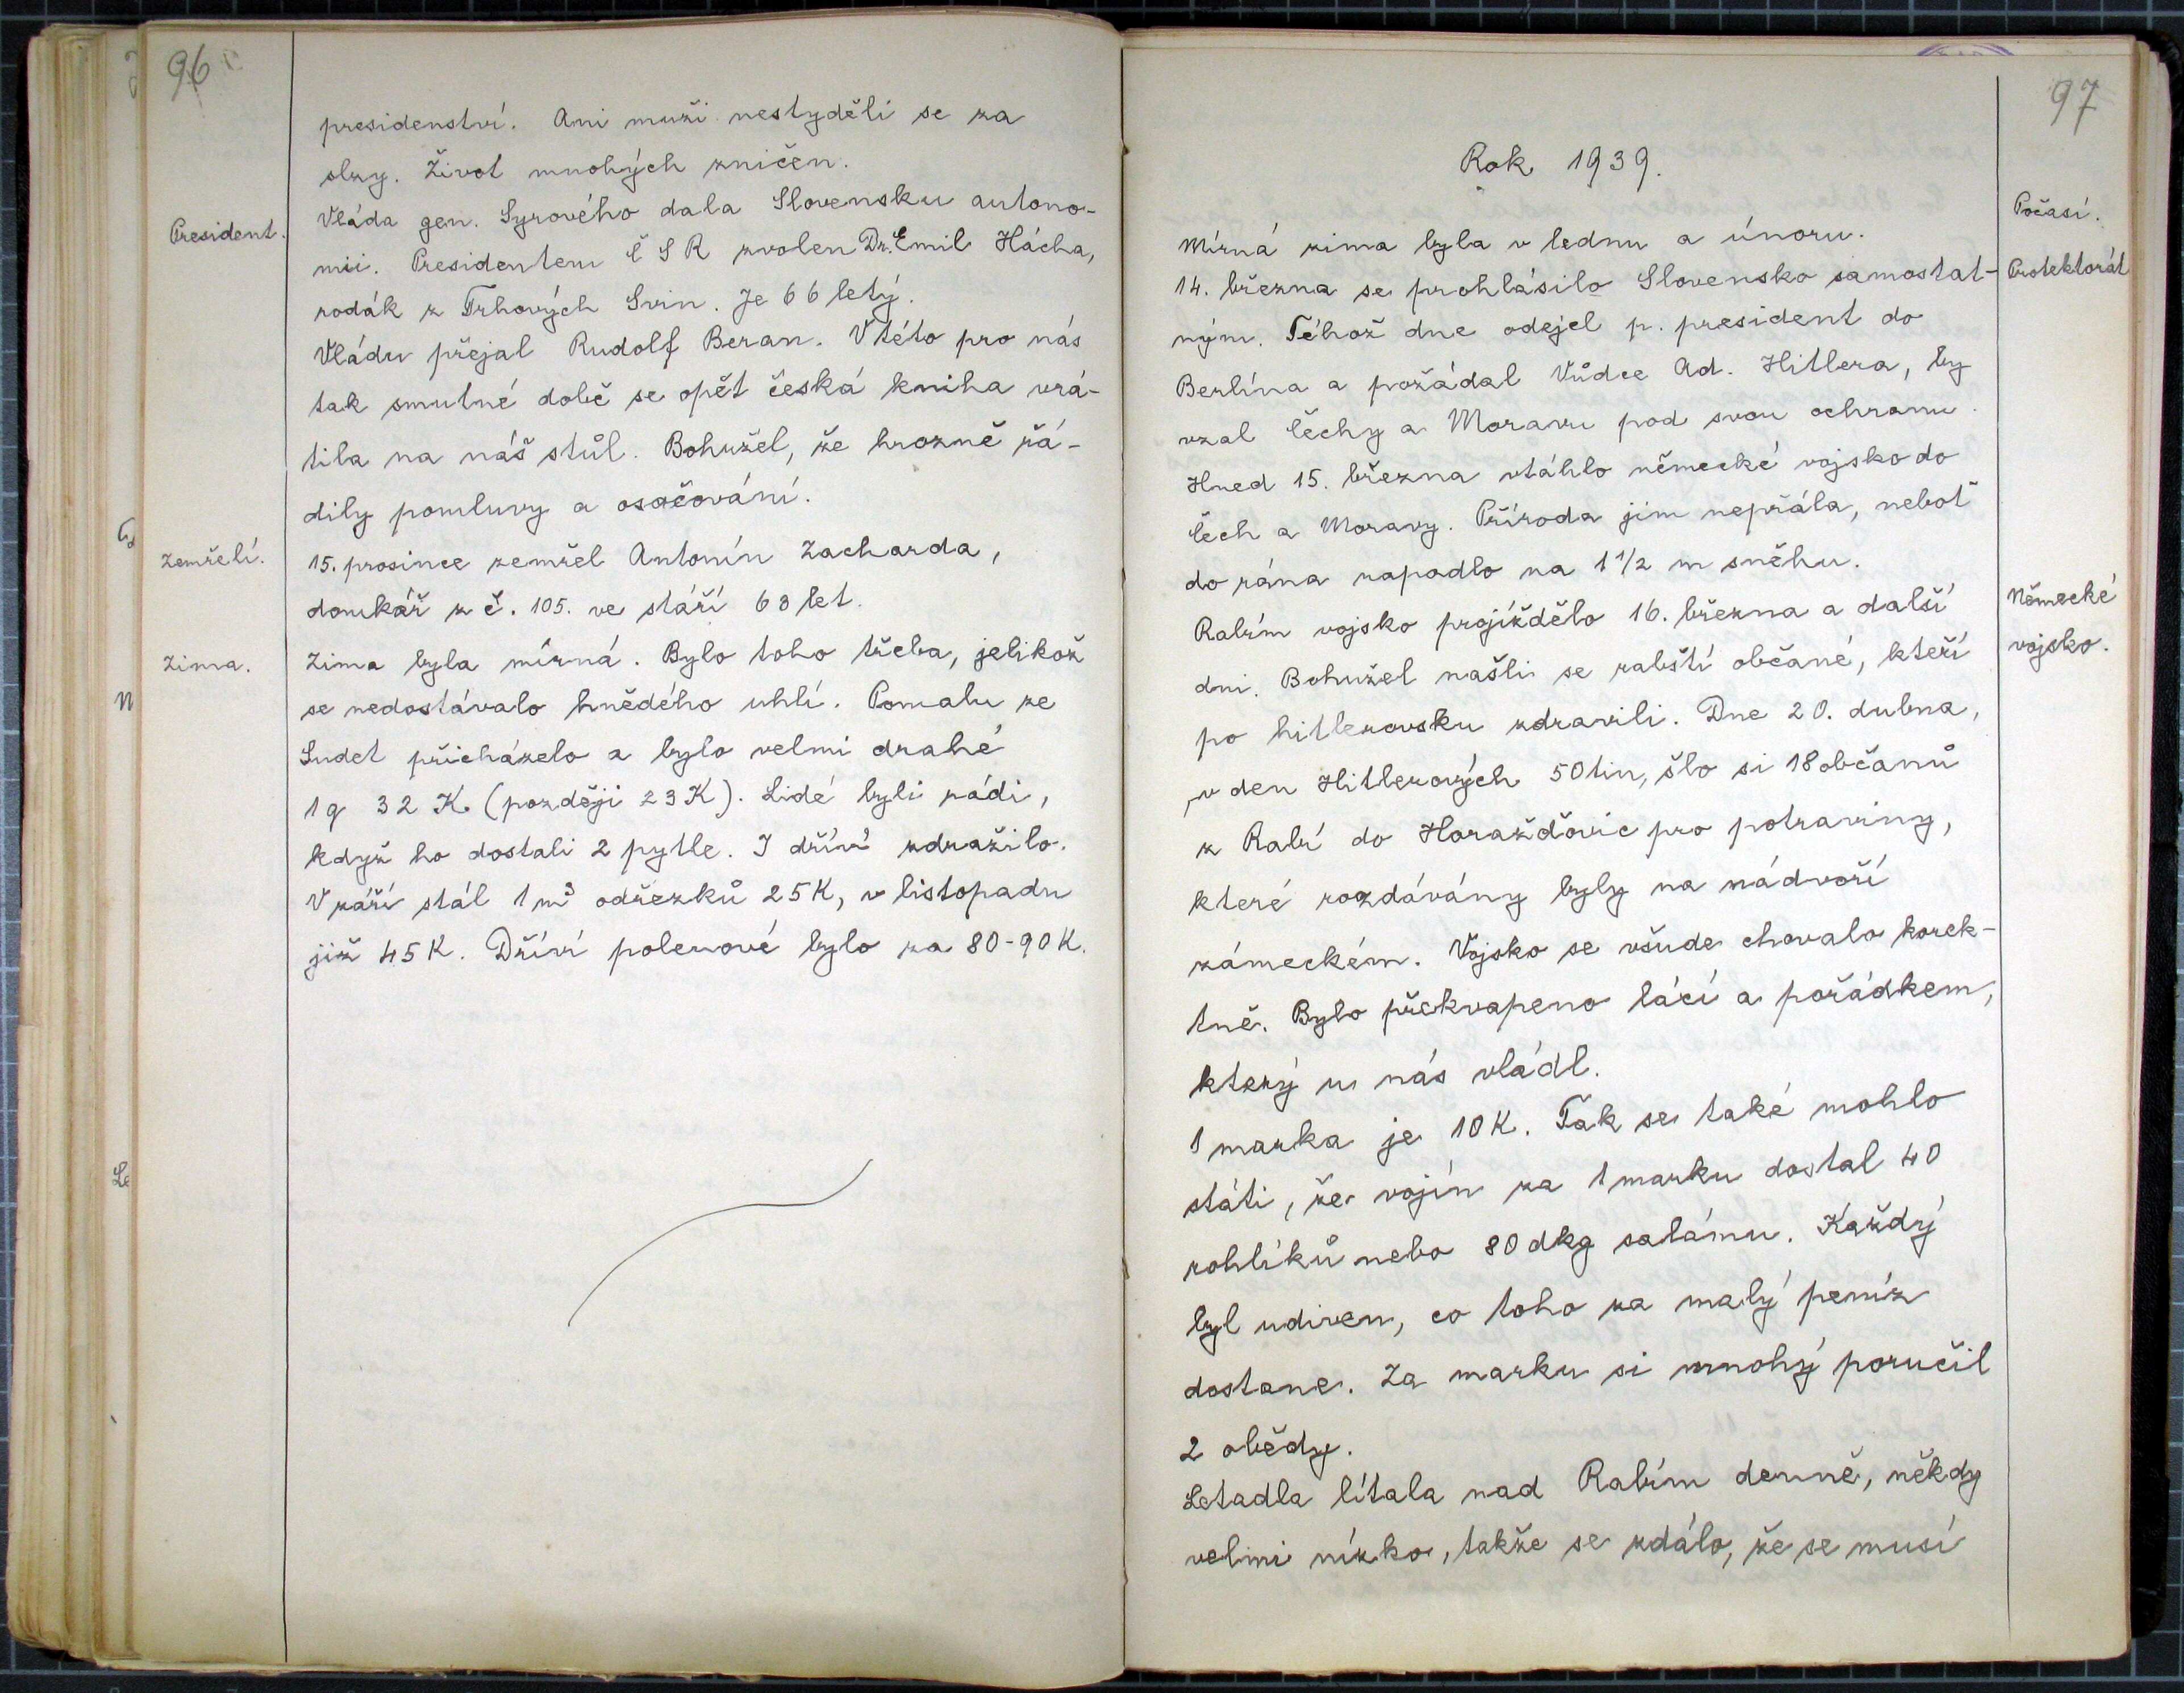 96
presidenství. Ani muži nestyděli se za
slzy. Život mnohých zničen.
President.
Vláda gen. Syrového dala Slovensku autono-
mii. Presidentem ČSR zvolen Dr. Emil Hácha,
rodák z Trhových Svin. Je 66 letý.
Vládu přejal Rudolf Beran. V této pro nás
tak smutné době se opět česká kniha vrá-
tila na náš stůl. Bohužel, že hrozně řá-
dily pomluvy a osočování.
Zemřelí.
15. prosince zemřel Antonín Zacharda,
domkář z č. 105. ve stáří 63 let.
Zima.
Zima byla mírná. Bylo toho třeba, jelikož
se nedostávalo hnědého uhlí. Pomalu ze
Sudet přicházelo a bylo velmi drahé
1 q 32 K (později 23 K). Lidé byli rádi,
když ho dostali 2 pytle. I dříví zdražilo.
V září stál 1 m³ odřezků 25 K, v listopadu
již 45 K. Dříví polenové bylo za 80-90 K.
97
Rok 1939.
Počasí.
Mírná zima byla v lednu a únoru.
Protektorát
14. března se prohlásilo Slovensko samostat-
ným. Téhož dne odejel p. president do
Berlína a požádal Vůdce Ad. Hitlera, by
vzal Čechy a Moravu pod svou ochranu.
Hned 15. března vtáhlo německé vojsko do
Čech a Moravy. Příroda jim nepřála, neboť
do rána napadlo na 1 1/2 m sněhu.
Německé
vojsko.
Rabím vojsko projíždělo 16. března a další
dni. Bohužel našli se rabští občané, kteří
po hitlerovsku zdravili. Dne 20. dubna,
v den Hitlerových 50tin, šlo si 18 občanů
z Rabí do Horažďovic pro potraviny,
které rozdávány byly na nádvoří
zámeckém. Vojsko se všude chovalo korek-
tně. Bylo překvapeno lácí a pořádkem,
který u nás vládl.
1 marka je 10 K. Tak se také mohlo
státi, že vojín za 1 marku dostal 40
rohlíků nebo 80 dkg salámu. Každý
byl udiven, co toho za malý peníz
dostane. Za marku si mnohý poručil
2 obědy.
Letadla lítala nad Rabím denně, někdy
velmi nízko, takže se zdálo, že se musí